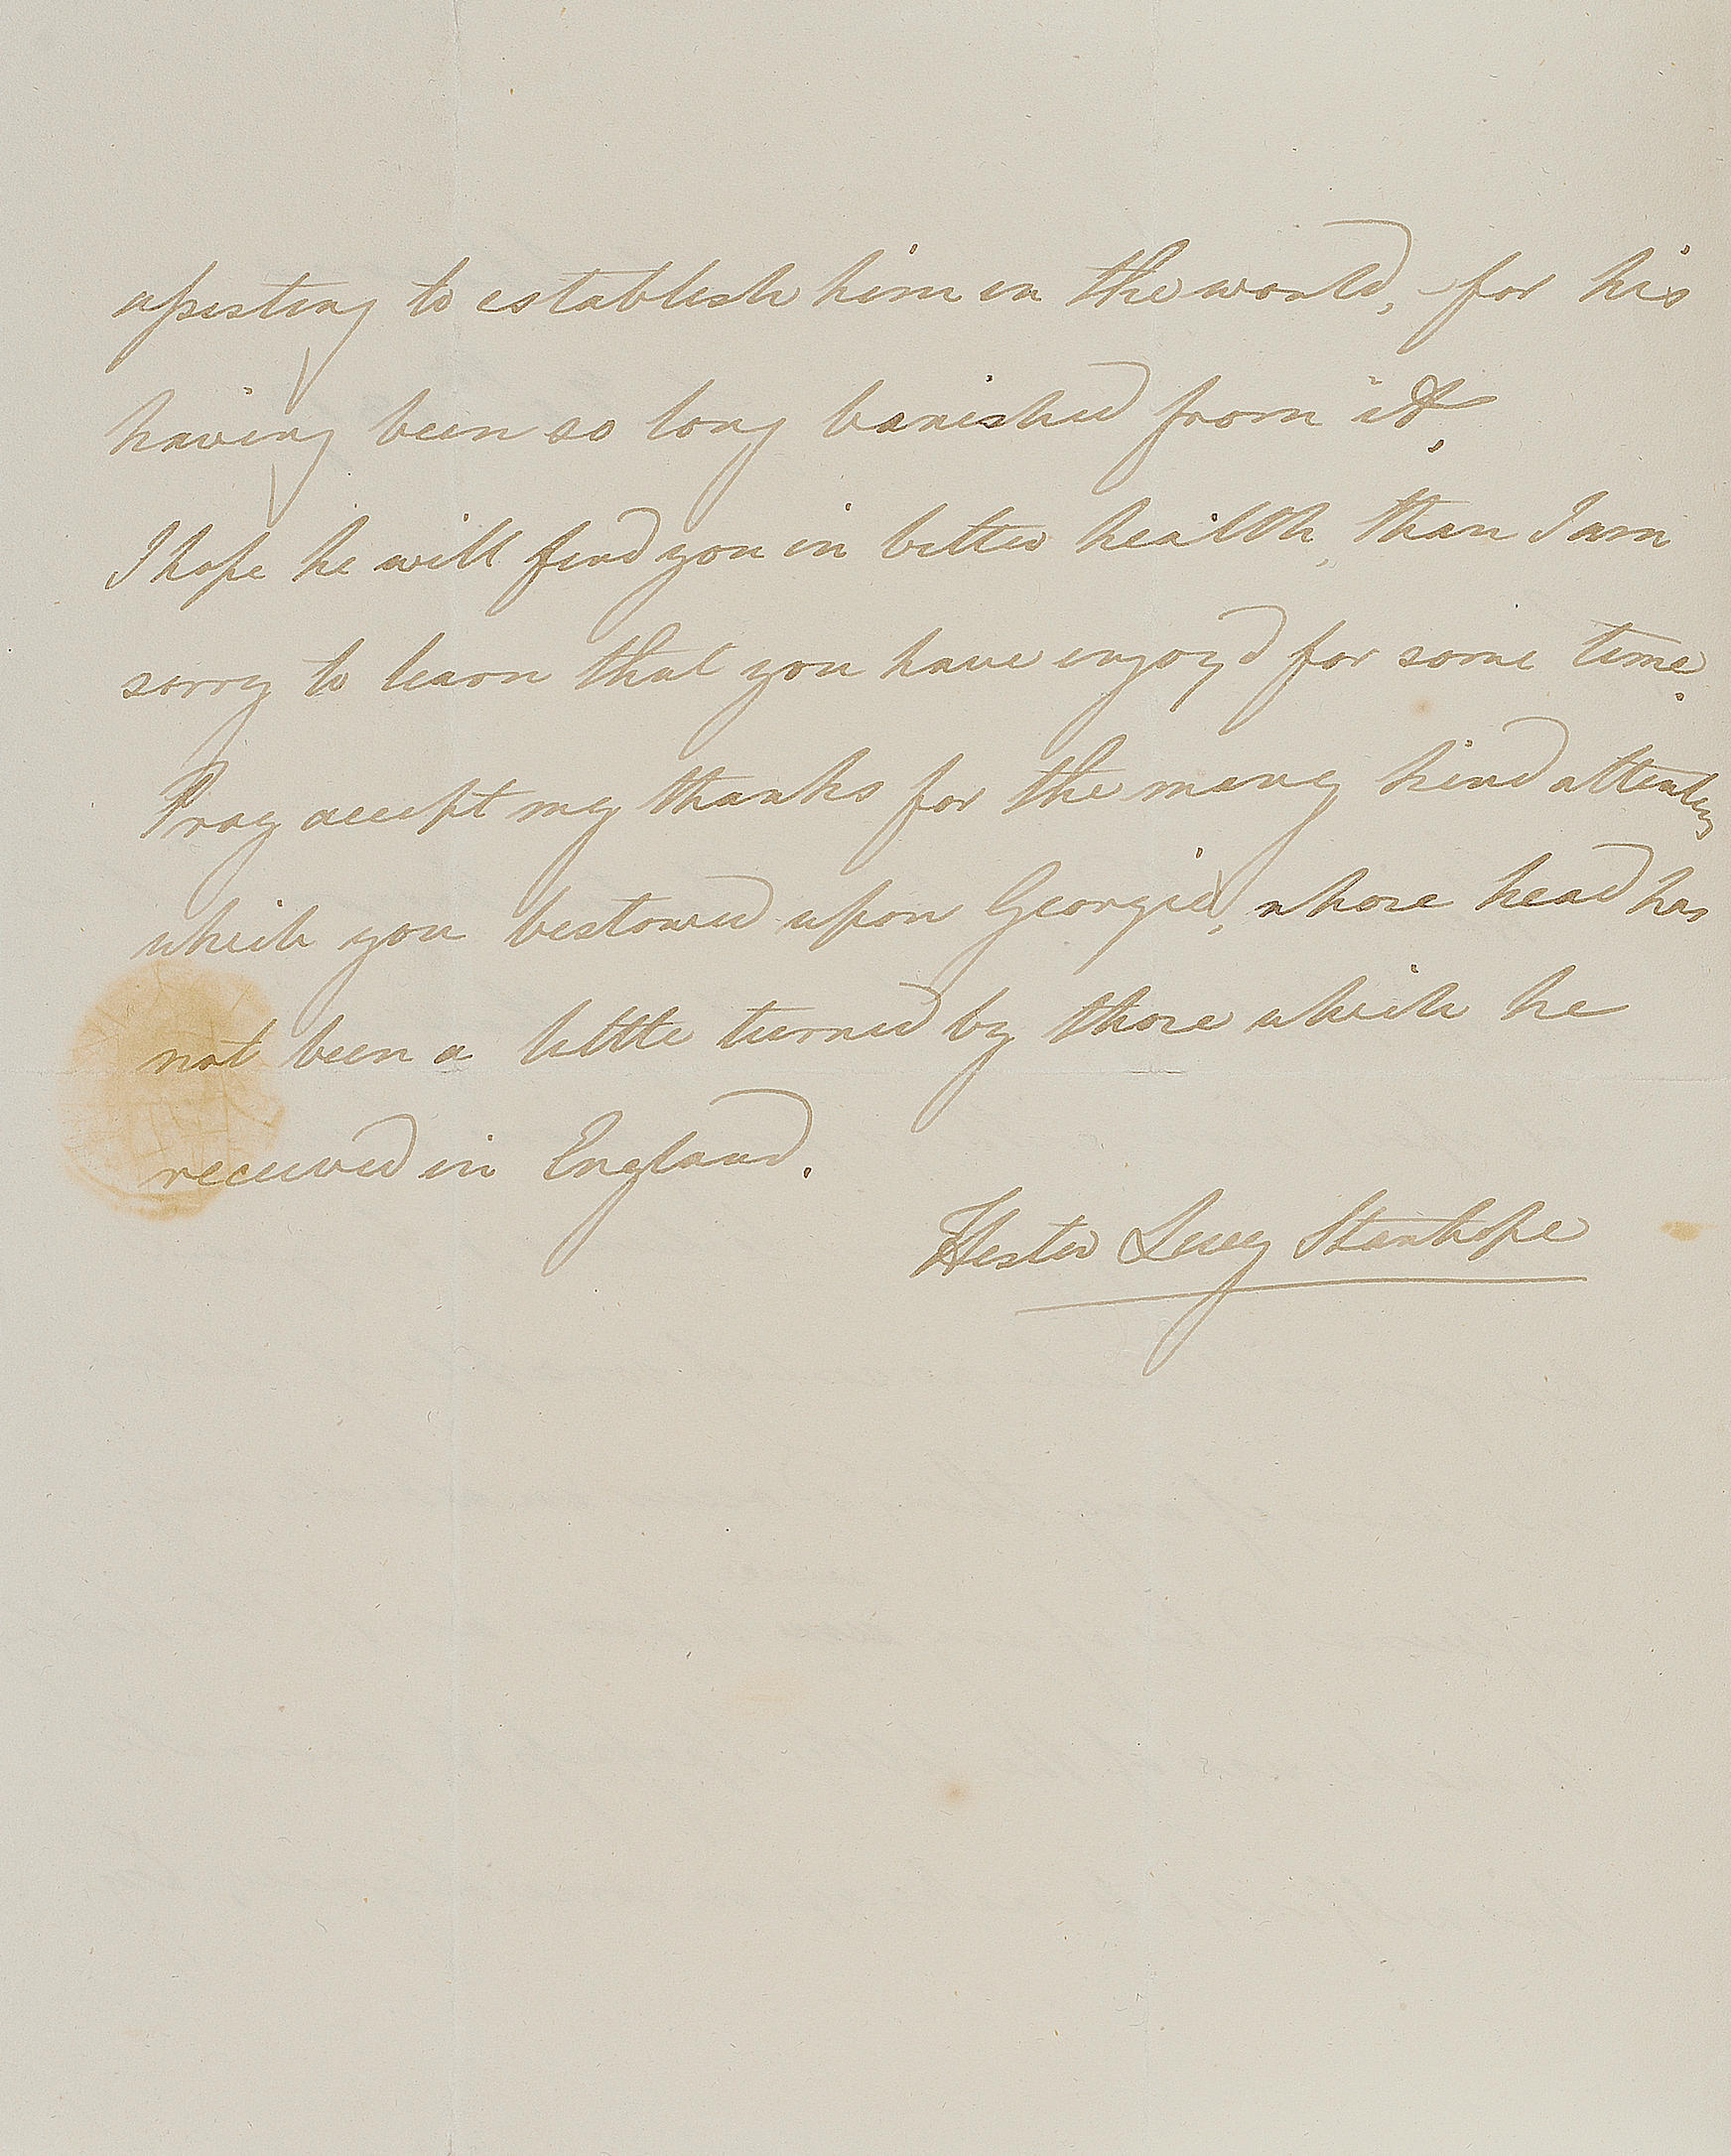 assisting to establish him in the world, for his
having been so long banished from it.
I hope he will find you in better health, than I am
sorry to learn that you have enjoy'd for some time.
Pray accept my thanks for the many kind attentions
which you bestowed upon Georgio, whose head has
not been a little turned by those which he
received in England.
Hester Lucy Stanhope